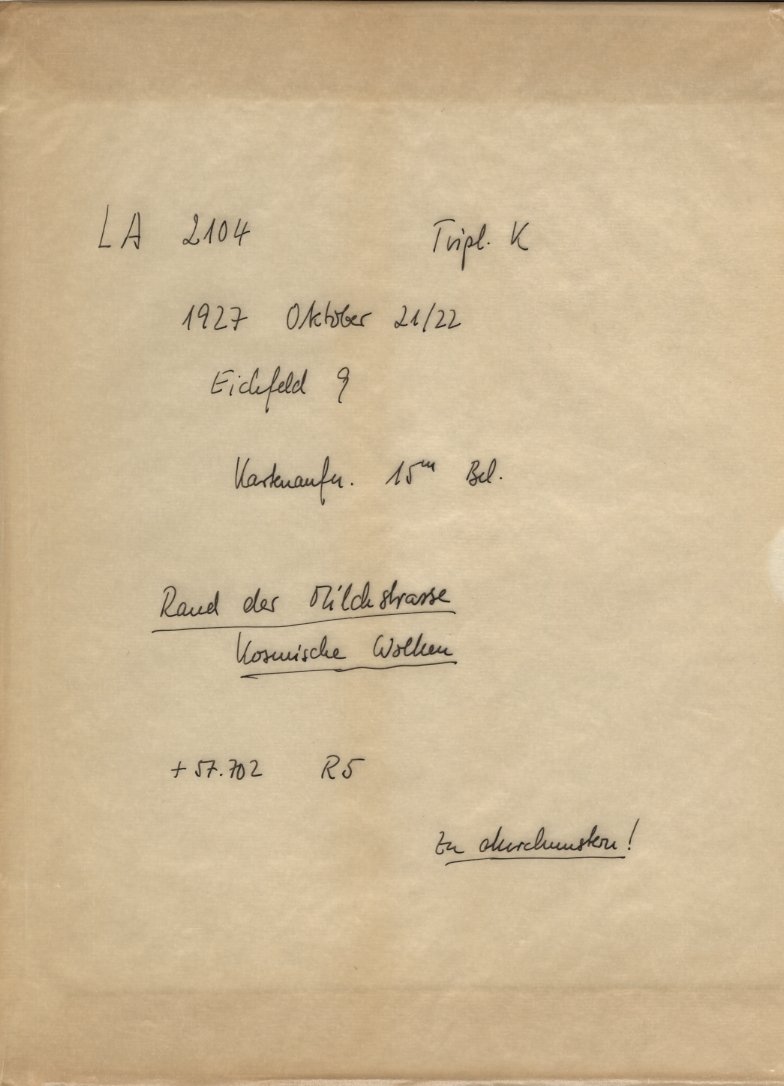 LA 2104 Tripl. K
1927 Oktober 21/22
Eichfeld 9
Kartenaufn. 15m Bel.
Rand der Milchstrasse
Kosmische Wolken
+ 57.702 R5
Zu durchmustern!